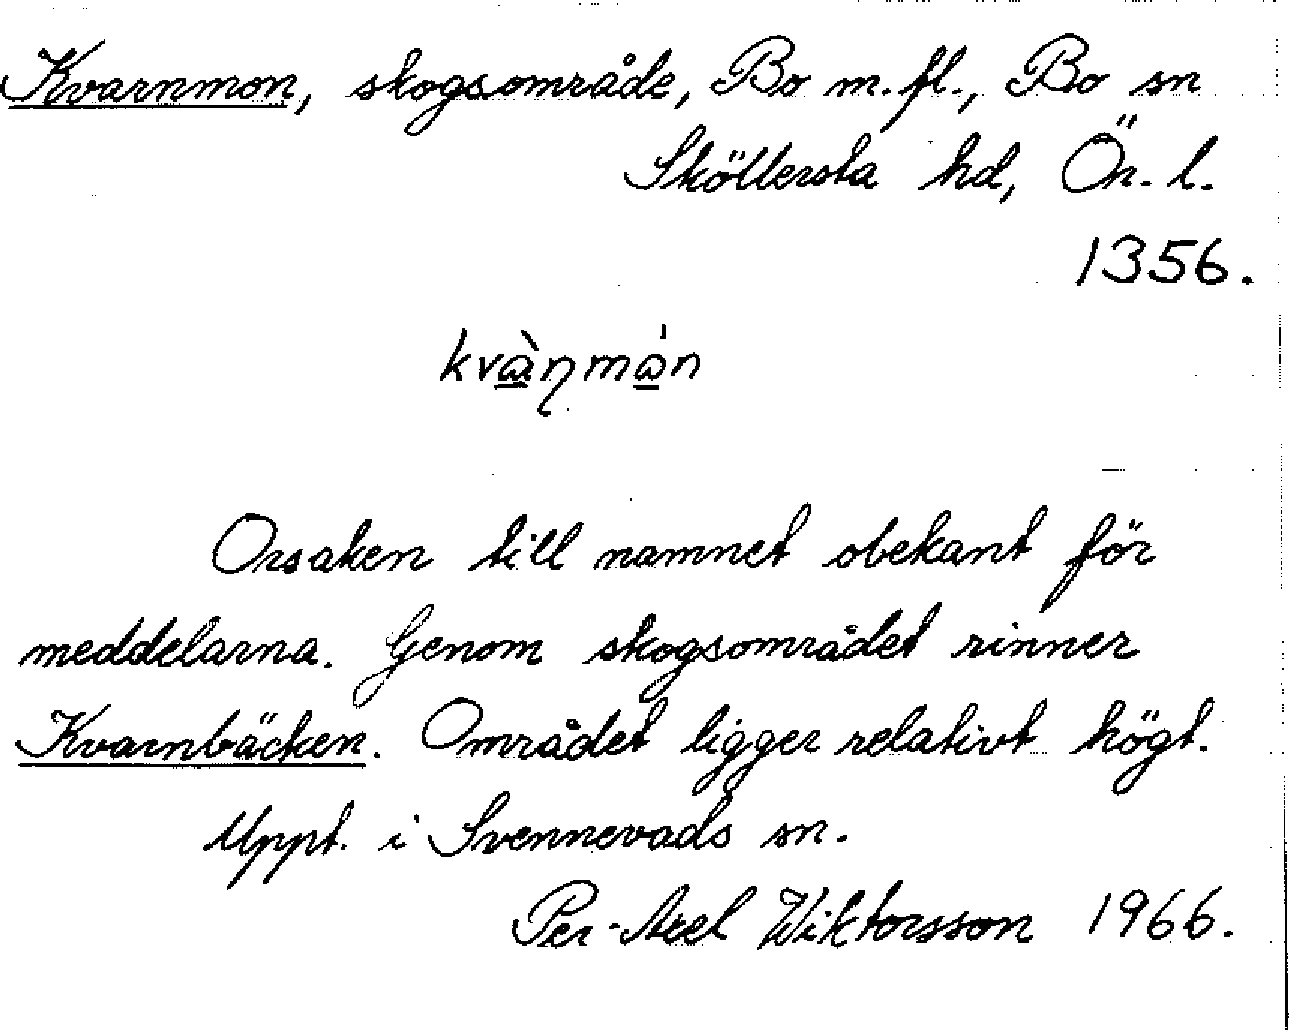 Kvarnmon, skogsområde, Bo m.fl., Bo sn
Sköllersta hd, Ör. l.
1356.
kvàɳmὰn
Orsaken till namnet obekant för
meddelarna. Genom skogsområdet rinner
Kvarnbäcken. Området ligger relativt högt.
Uppt. i Svennevads sn.
Per-Axel Wiktorsson 1966.